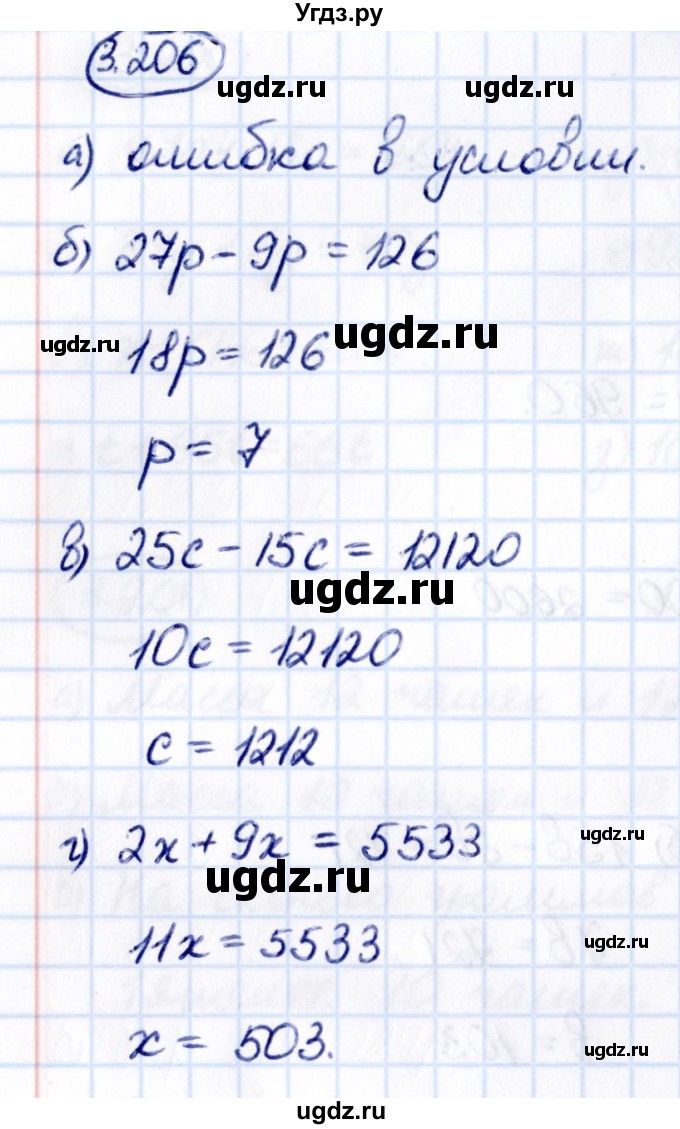 Угдз.ру
3.206
ugdz.ru ugdz.ru
а) ошибка в условии.
б) 27p - 9p = 126
ugdz.ru 18p = 126 ugdz.ru
p = 7
в) 25c - 15c = 12120
ugdz.ru
10c = 12120
c = 1212
г) 2x + 9x = 5533 ugdz.ru
ugdz.ru
11x = 5533 ugdz.ru
x = 503. ugdz.ru
ugdz.ru